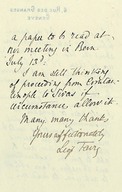 a paper to be read at
our meeting in Bern
July 13th.
I am still thinking
of proceeding from Constan-
tinople to Sivas if
circumstances allow it.
Many, many thanks
Yours affectionately